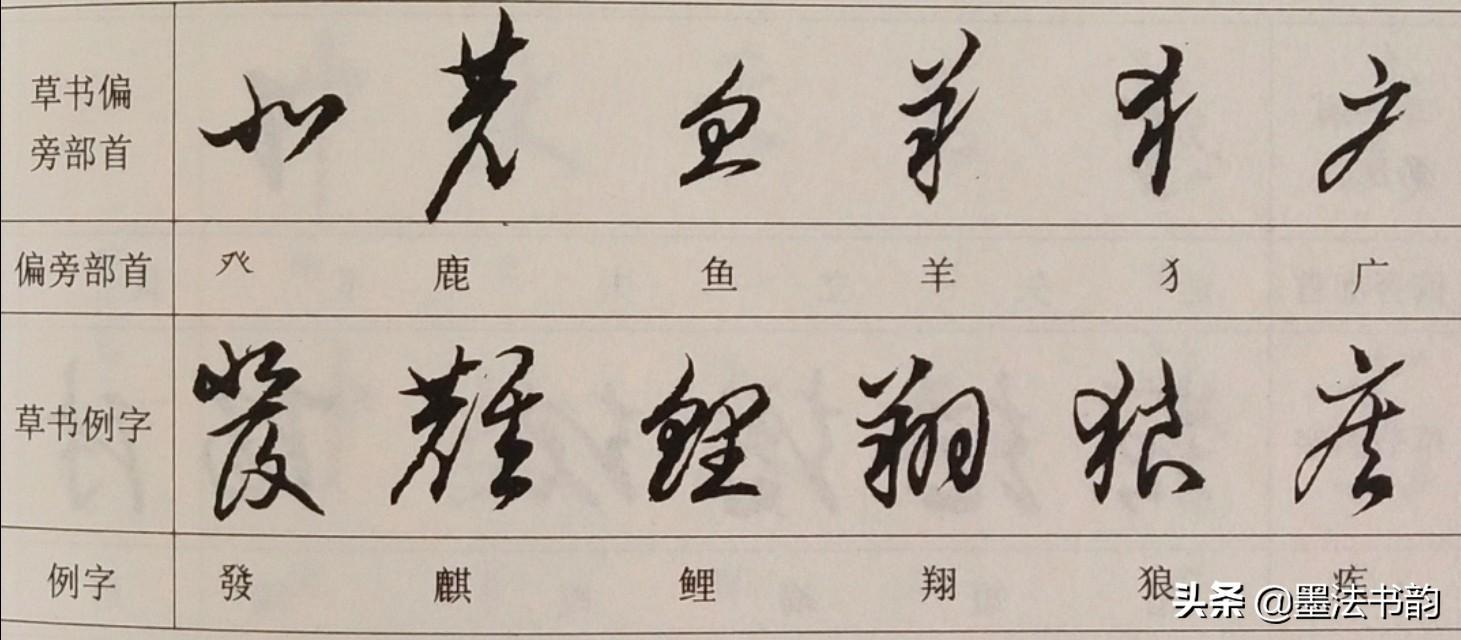 草书偏
旁部首
偏旁部首 癶 鹿 鱼 羊 犭 广
草书例字 發 麒 鲤 翔 狼
例字 發 麒 鲤 翔 狼
头条 @墨法书韵